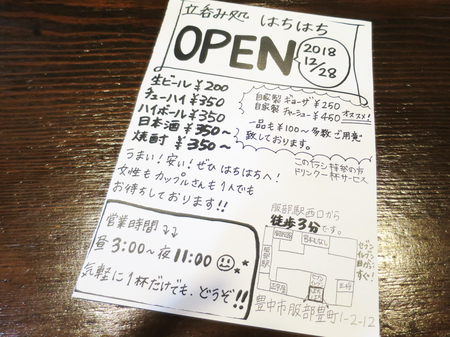 立呑み処 はちはち
OPEN
2018
12/28
生ビール ¥200
チューハイ ¥350
ハイボール ¥350
日本酒 ¥350~
焼酎 ¥350~
自家製 ギョーザ ¥250
自家製 チャーシュー ¥450 オススメ!
一品も ¥100~ 多数ご用意
致しております。
このチラシ持参の方
ドリンク一杯サービス
うまい!安い!ぜひはちはちへ!
女性もカップルさんも1人でも
お待ちしております!!
営業時間
昼3:00~夜11:00
気軽に1杯だけでも、どうぞ!!
服部駅西口から
徒歩3分です。
豊中市服部豊町1-2-12